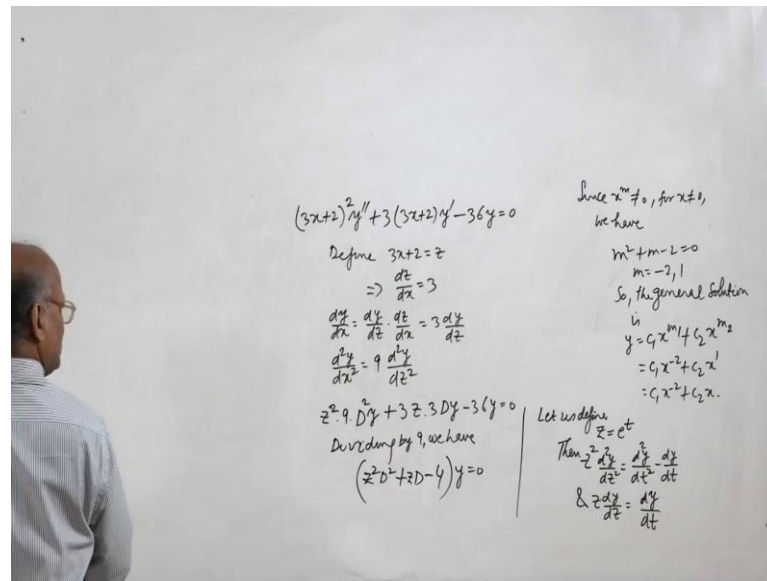 (3x+2)²y″+3(3x+2)y′−36y=0
Define 3x+2=z
=> dz/dx=3
dy/dx=dy/dz·dz/dx=3dy/dz
d²y/dx²=9 d²y/dz²
z².9.D²y+3z.3Dy−36y=0
Dividing by 9, we have
(z²D²+zD−4)y=0
Since x^m≠0, for x≠0,
we have
m²+m−2=0
m=−2,1
So, the general Solution
is
y=c₁x^m₁+c₂x^m₂
=c₁x⁻²+c₂x¹
=c₁x⁻²+c₂x.
Let us define
z=e^t
Then z²d²y/dz²=d²y/dt²-dy/dt
& zdy/dz=dy/dt